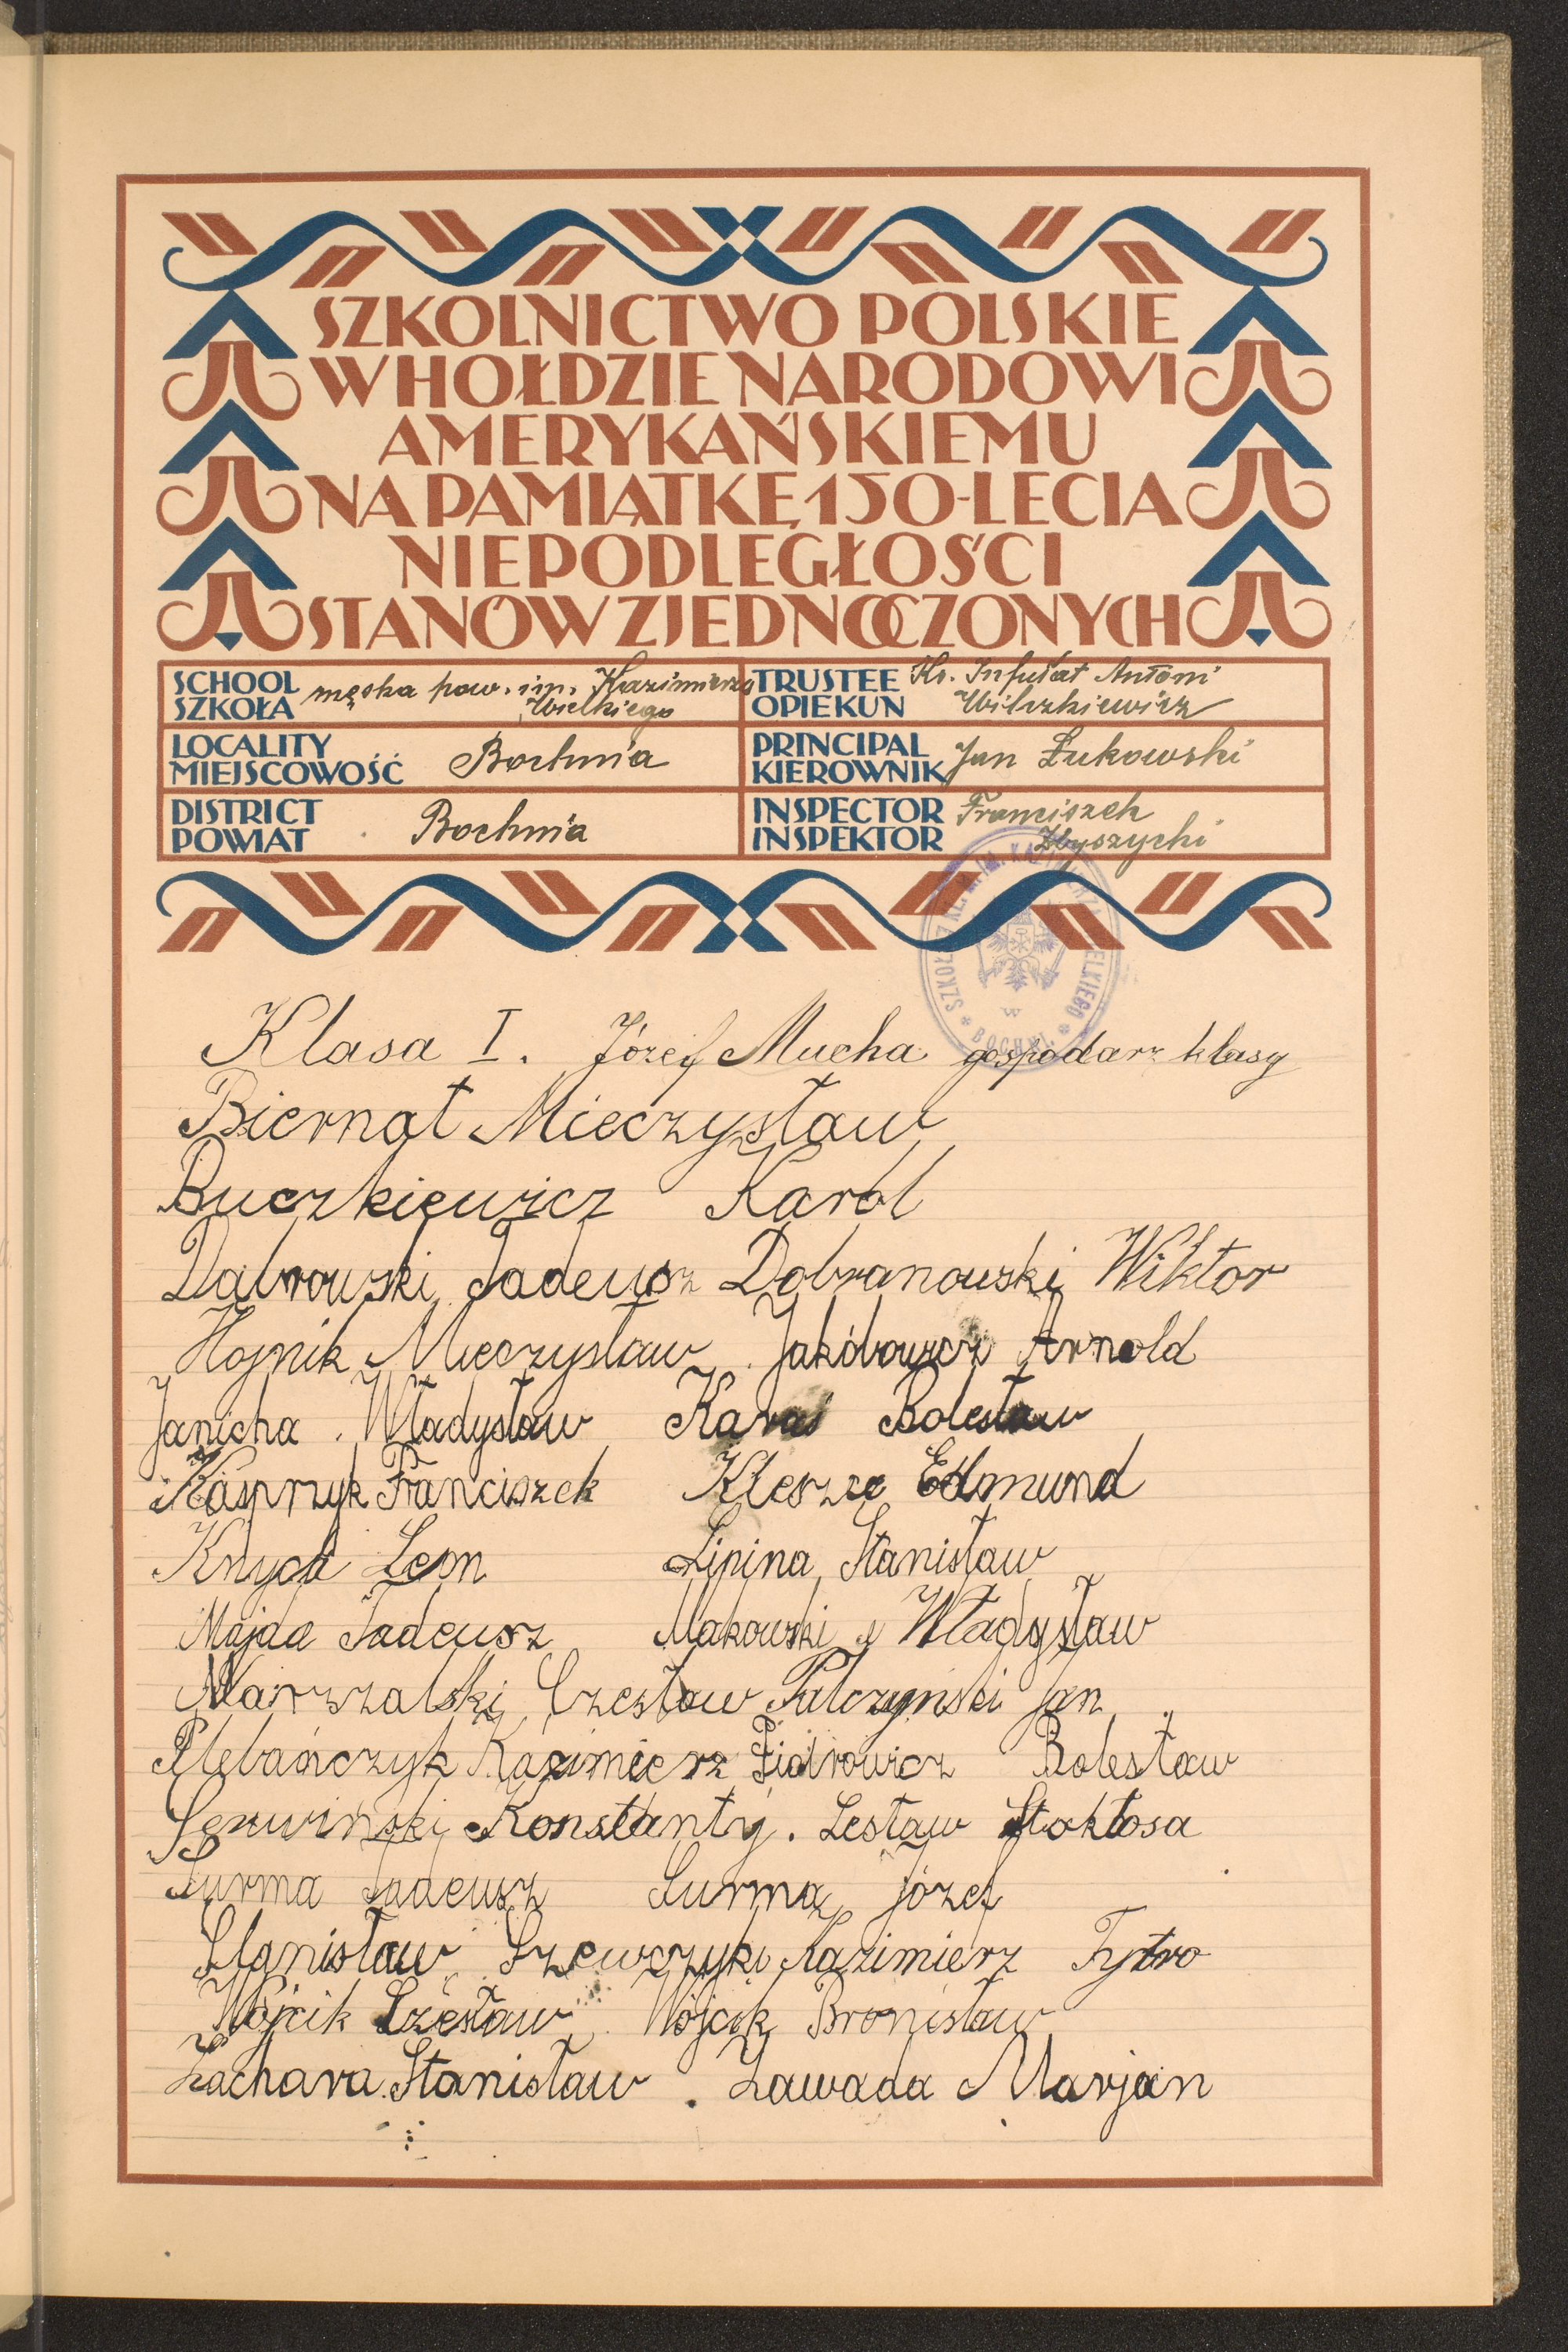 SZKOLNICTWO POLSKIE
W HOŁDZIE NARODOWI
AMERYKAŃSKIEMU
NA PAMIĄTKĘ 150-LECIA
NIEPODLEGŁOŚCI
STANÓW ZJEDNOCZONYCH
SCHOOL SZKOŁA męska pow. im. Kazimierza Wielkiego
TRUSTEE OPIEKUN Ks. Infułat Antoni Wilczkiewicz
LOCALITY MIEJSCOWOŚĆ Bochnia
PRINCIPAL KIEROWNIK Jan Łukowski
DISTRICT POWIAT Bochnia
INSPECTOR INSPEKTOR Franciszek Zbyszycki
Klasa I. Józef Mucha gospodarz klasy
Biernat Mieczysław
Buczkiewicz Karol
Dąbrowski Tadeusz Dobranowski Wiktor
Hojnik Mieczysław Jakóbowicz Arnold
Janicha Władysław Karaś Bolesław
Kasprzyk Franciszek Kleszcz Edmund
Knych Leon Lipina Stanisław
Majda Tadeusz Makowski Władysław
Marszalski Czesław Palczyński Jan
Plebańczyk Kazimierz Piotrowicz Bolesław
Serwiński Konstanty. Lesław Stokłosa
Surma Tadeusz Surma Józef
Stanisław Szewczyk Kazimierz Tytro
Wójcik Czesław Wójcik Bronisław
Zachara Stanisław. Zawada Marjan